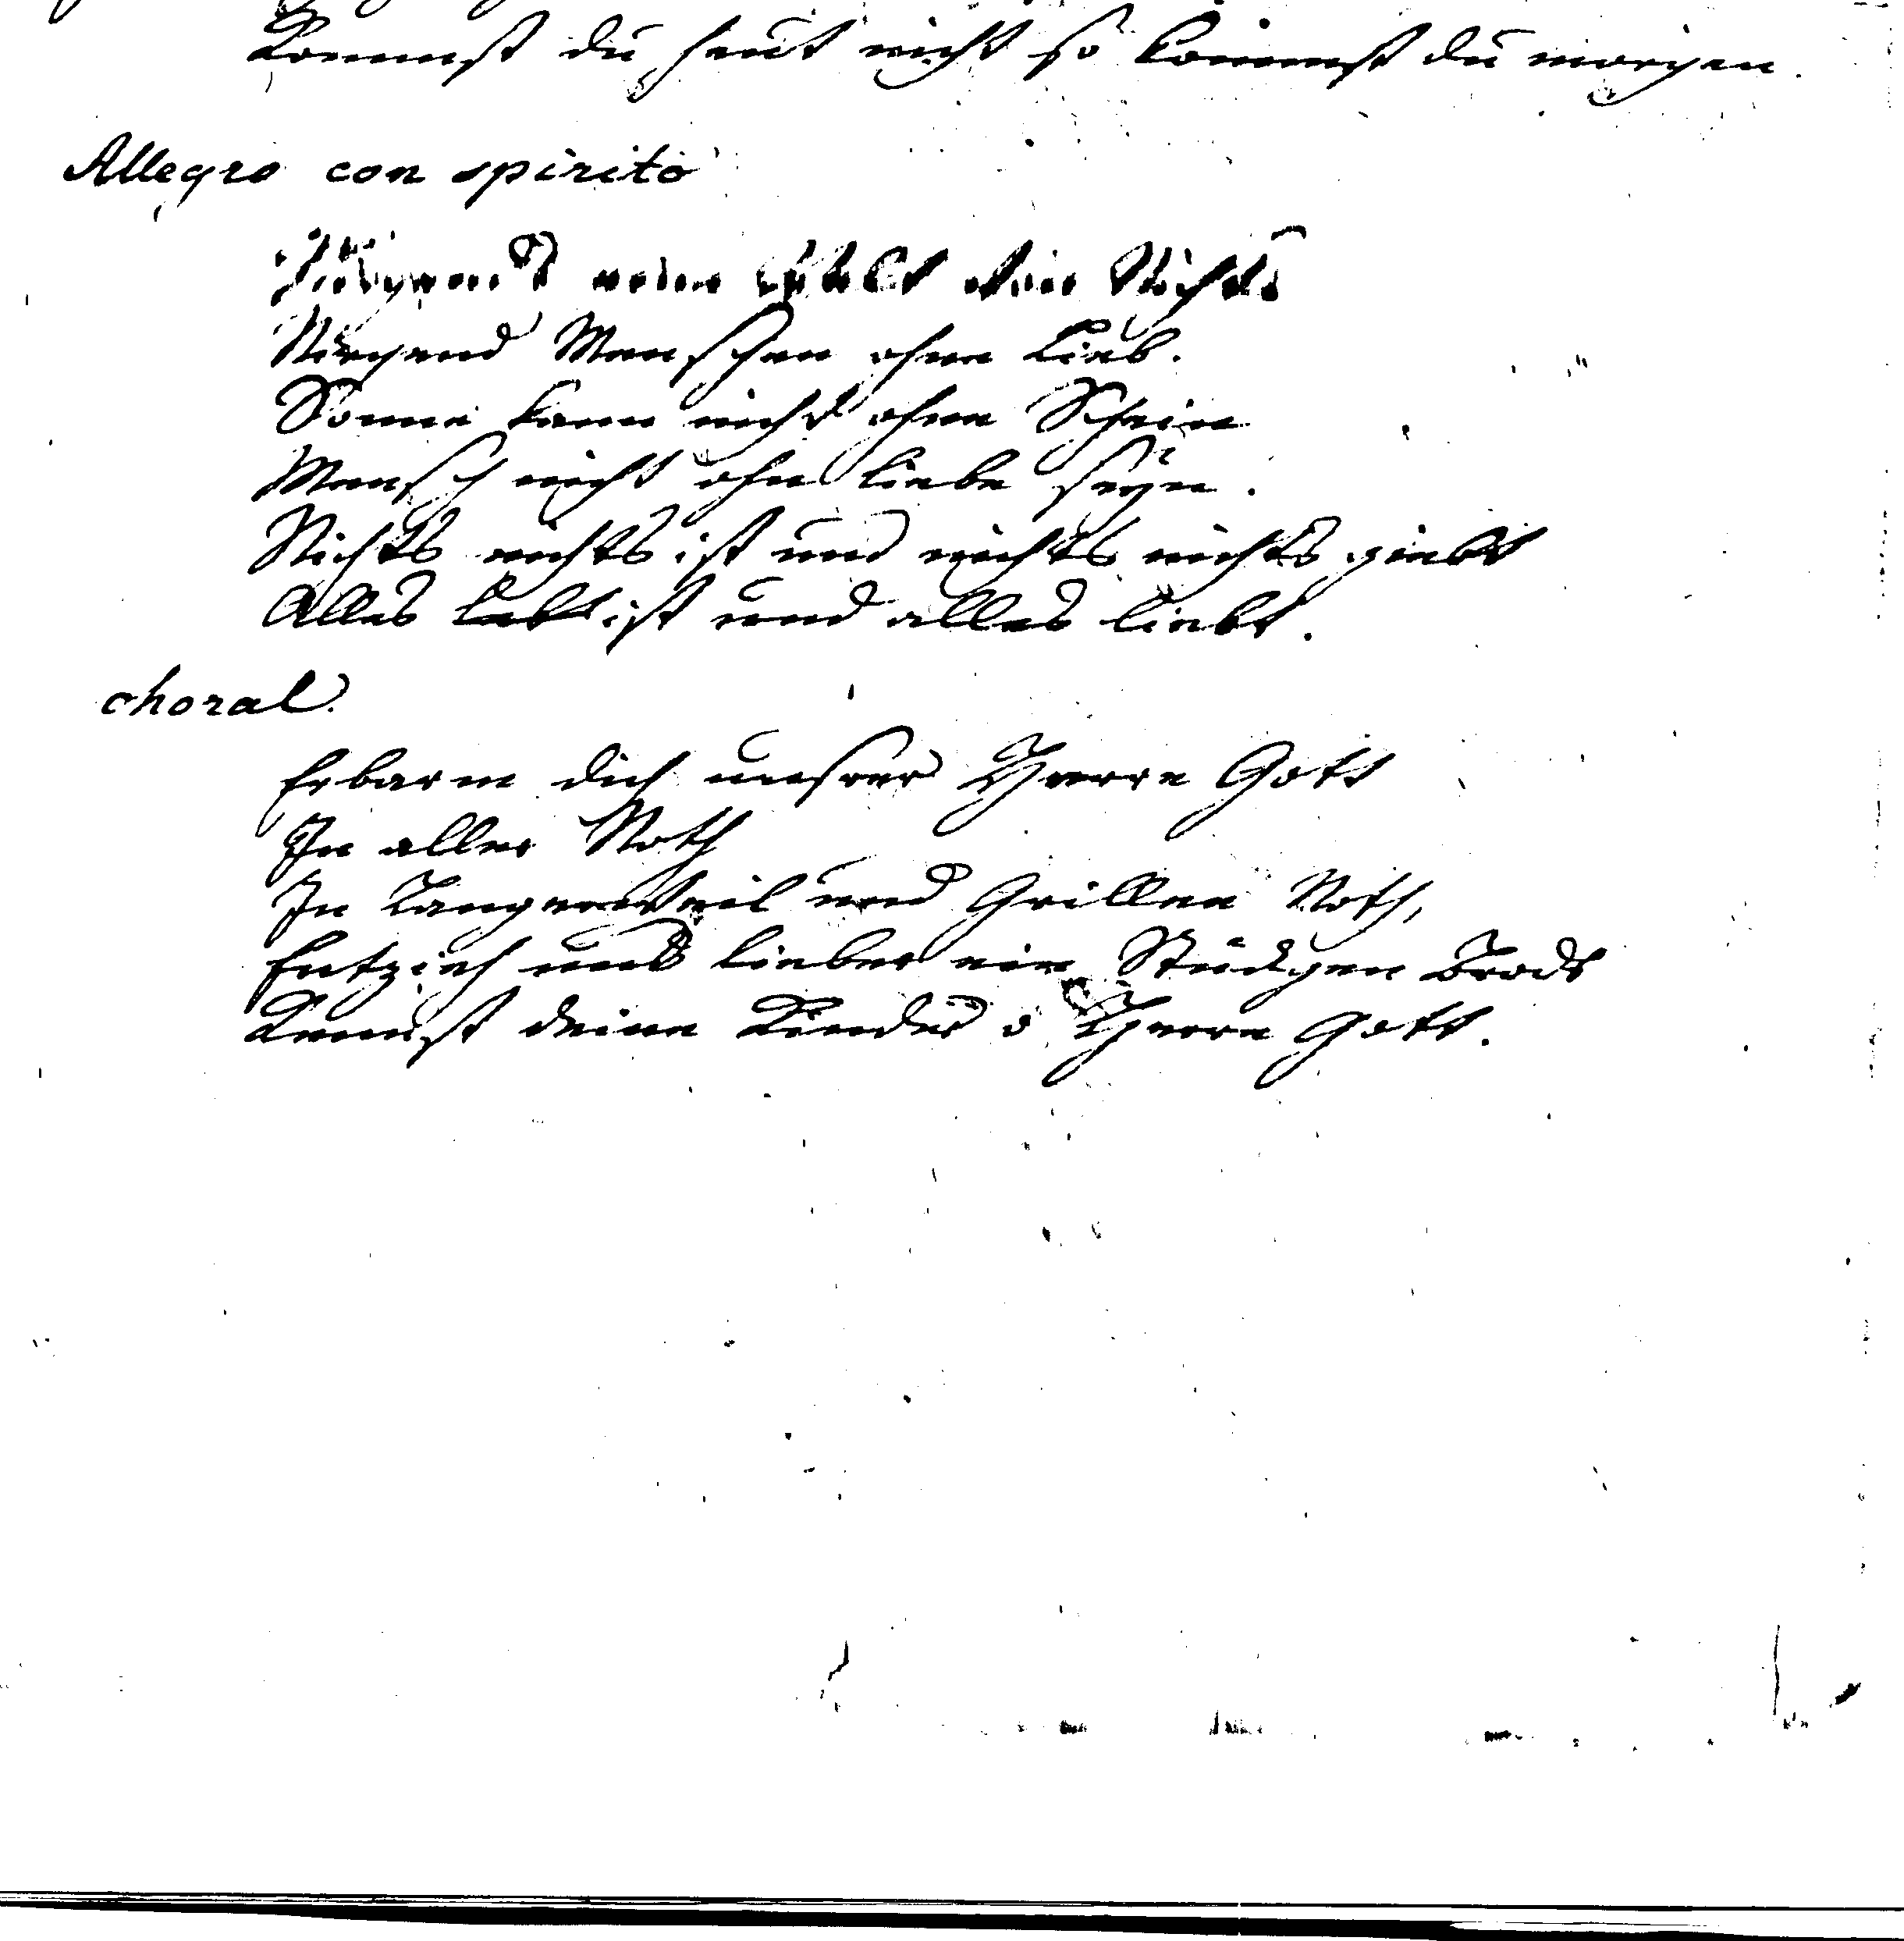 Kommst du heut nicht so kommst du morgen.
Allegro con spirito
Nirgend eine Welt von Nichts
Nirgend Menschen ohne Lieb.
Sonne kann nicht ohne Schein
Mensch nicht ohne Liebe seyn.
Nichts nichts ist und nichts nichts giebt
Alles lebt ist und alles liebt.
choral.
Erbarm dich unsrer Herre Gott
In aller Noth
In Langerweil und Grillen Noth,
Entzieh uns lieber ein Stückgen Brodt
Kennst deine Kinder o Herre Gott.